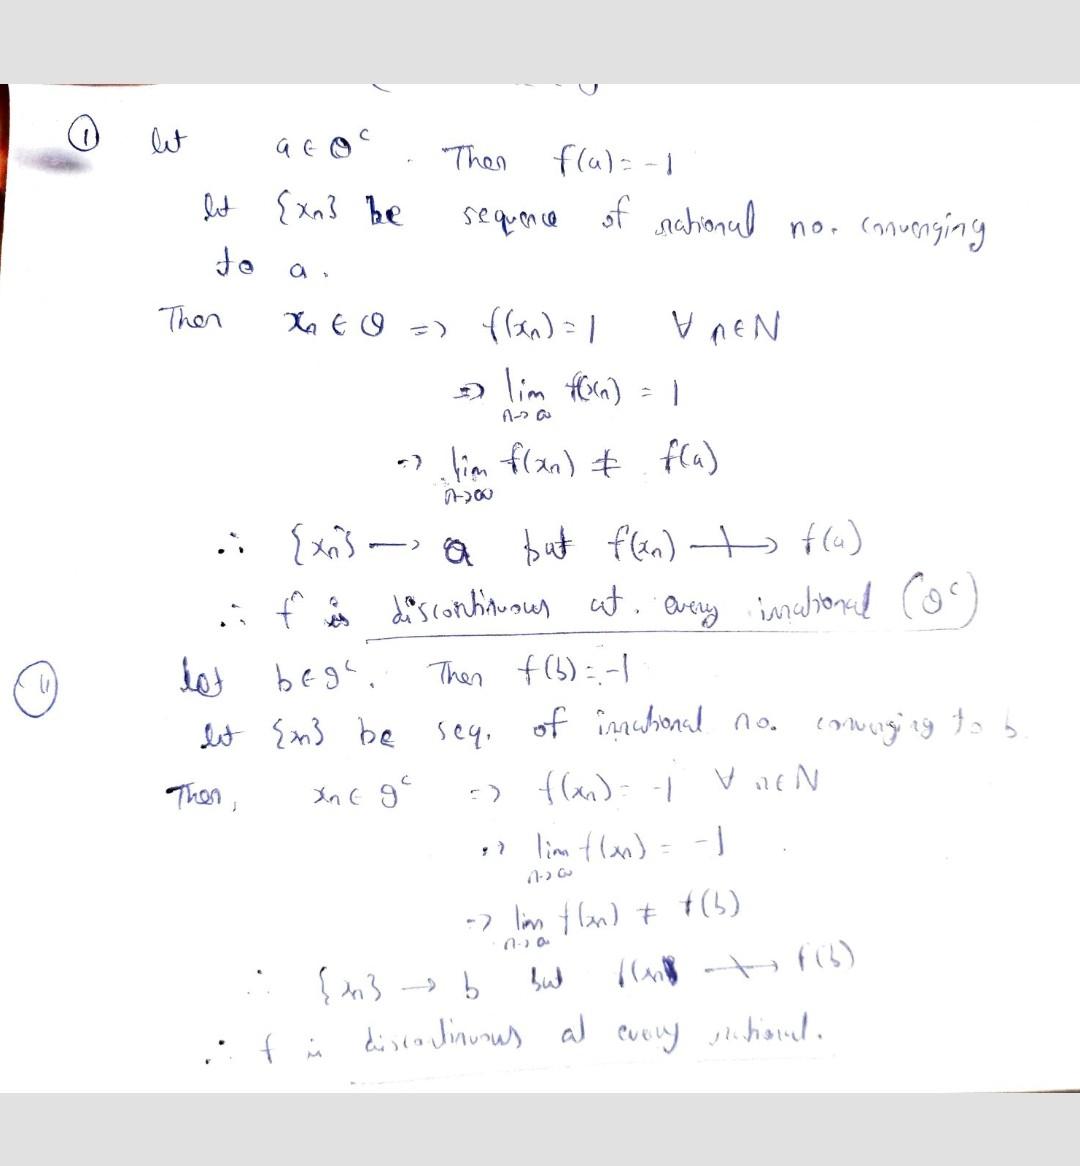 ① let a ∈ Q^c . Then f(a) = -1
let {xn} be sequence of rational no. converging
to a.
Then xn ∈ Q => f(xn) = 1 ∀ n ∈ N
=> lim n→∞ f(xn) = 1
=> lim n→∞ f(xn) ≠ f(a)
∴ {xn} → a but f(xn) ↛ f(a)
∴ f is discontinuous at every irrational (Q^c)
⑪ let b ∈ Q^c. Then f(b) = -1
let {xn} be seq. of irrational no. converging to b
Then, xn ∈ Q^c => f(xn) = -1 ∀ n ∈ N
=> lim n→∞ f(xn) = -1
=> lim n→∞ f(xn) ≠ f(b)
∴ {xn} → b but f(xn) ↛ f(b)
∴ f is discontinuous at every rational.